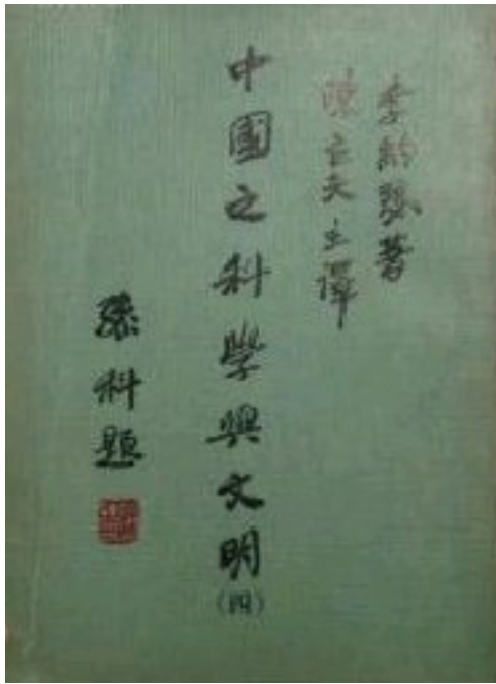 李約瑟著
陳立夫主譯
中國之科學與文明(四)
孫科題